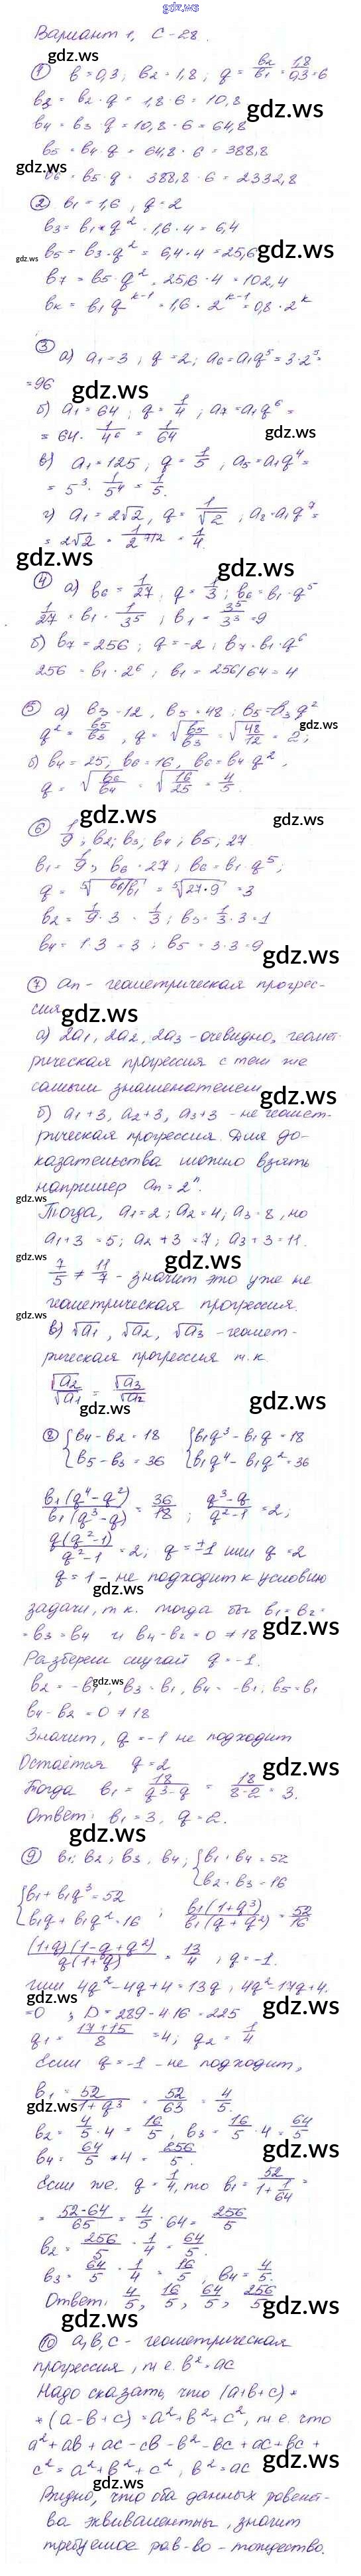 gdz.ws
Вариант 1, С-28.
① b=0,3; b₂=1,8; q = b₂/b₁ = 1,8/0,3 = 6
b₃ = b₂ · q = 1,8 · 6 = 10,8
b₄ = b₃ · q = 10,8 · 6 = 64,8
b₅ = b₄ · q = 64,8 · 6 = 388,8
b₆ = b₅ · q = 388,8 · 6 = 2332,8
② b₁ = 1,6, q = 2
b₃ = b₁ · q² = 1,6 · 4 = 6,4
b₅ = b₃ · q² = 6,4 · 4 = 25,6
b₇ = b₅ · q² = 25,6 · 4 = 102,4
bₖ = b₁ q^(k-1) = 1,6 · 2^(k-1) = 0,8 · 2^k
③ а) a₁ = 3; q = 2; a₆ = a₁q⁵ = 3 · 2⁵ =
= 96
б) a₁ = 64; q = 1/4; a₇ = a₁q⁶ =
= 64 · 1/4⁶ = 1/64
в) a₁ = 125, q = 1/5, a₅ = a₁q⁴ =
= 5³ · 1/5⁴ = 1/5.
г) a₁ = 2√2, q = 1/√2, a₈ = a₁q⁷ =
= 2√2 · 1/2^(7/2) = 1/4.
④ а) b₆ = 1/27; q = 1/3; b₆ = b₁ · q⁵
1/27 = b₁ · 1/3⁵; b₁ = 3⁵/3³ = 9
б) b₇ = 256; q = -2; b₇ = b₁ · q⁶
256 = b₁ · 2⁶; b₁ = 256/64 = 4
⑤ а) b₃ = 12, b₅ = 48; b₅ = b₃q²
q² = b₅/b₃, q = √(b₅/b₃) = √(48/12) = 2;
б) b₄ = 25, b₆ = 16, b₆ = b₄q²,
q = √(b₆/b₄) = √(16/25) = 4/5.
⑥ 1/9; b₂; b₃; b₄; b₅; 27
b₁ = 1/9; b₆ = 27; b₆ = b₁ · q⁵;
q = ⁵√(b₆/b₁) = ⁵√(27·9) = 3
b₂ = 1/9 · 3 = 1/3; b₃ = 1/3 · 3 = 1
b₄ = 1·3 = 3; b₅ = 3·3 = 9
⑦ aₙ - геометрическая прогрес-
сия
а) 2a₁, 2a₂, 2a₃ - очевидно, геомет-
рическая прогрессия с тем же
самым знаменателем
б) a₁+3, a₂+3, a₃+3 - не геомет-
рическая прогрессия. Для до-
казательства можно взять
например aₙ = 2ⁿ.
Тогда, a₁ = 2; a₂ = 4; a₃ = 8, но
a₁+3 = 5; a₂+3 = 7; a₃+3 = 11.
7/5 ≠ 11/7 - значит это уже не
геометрическая прогрессия.
в) √a₁, √a₂, √a₃ - геомет-
рическая прогрессия т.к.
√a₂/√a₁ = √a₃/√a₂
⑧ {b₄ - b₂ = 18 {b₁q³ - b₁q = 18
{b₅ - b₃ = 36 {b₁q⁴ - b₁q² = 36
b₁(q⁴-q²)/b₁(q³-q) = 36/18; q³-q/q²-1 = 2;
q(q²-1)/q²-1 = 2; q = ±1 или q = 2
q = 1 - не подходит к условию
задачи, т.к. тогда бы b₁ = b₂ =
= b₃ = b₄ и b₄ - b₂ = 0 ≠ 18
Разберем случай q = -1.
b₂ = -b₁, b₃ = b₁, b₄ = -b₁, b₅ = b₁
b₄ - b₂ = 0 ≠ 18
Значит, q = -1 не подходит
Остаётся q = 2
Тогда b₁ = 18/(q³-q) = 18/(8-2) = 3.
Ответ: b₁ = 3, q = 2.
⑨ b₁; b₂; b₃, b₄; {b₁ + b₄ = 52
{b₂ + b₃ = 16
{b₁ + b₁q³ = 52
{b₁q + b₁q² = 16; b₁(1+q³)/b₁(q+q²) = 52/16
(1+q)(1-q+q²)/q(1+q) = 13/4, q = -1.
или 4q² - 4q + 4 = 13q, 4q² - 17q + 4.
= 0; D = 289 - 4·16 = 225
q₁ = (17+15)/8 = 4; q₂ = 1/4
Если q = -1 - не подходит,
b₁ = 52/(1+q³) = 52/65 = 4/5.
b₂ = 4/5 · 4 = 16/5, b₃ = 16/5 · 4 = 64/5
b₄ = 64/5 · 4 = 256/5.
Если же q = 1/4, то b₁ = 52/(1+1/64) =
= 52·64/65 = 4/5 · 64 = 256/5
b₂ = 256/5 · 1/4 = 64/5.
b₃ = 64/5 · 1/4 = 16/5, b₄ = 4/5.
Ответ: 4/5, 16/5, 64/5, 256/5
⑩ a, b, c - геометрическая
прогрессия, т.е. b² = ac
Надо сказать, что (a+b+c) ·
· (a-b+c) = a²+b²+c², т.е. что
a² + ab + ac - cb - b² - bc + ac + bc +
c² = a² + b² + c², b² = ac
Видно, что оба данных равенст-
ва эквивалентны, значит
требуемое рав-во - тождество.